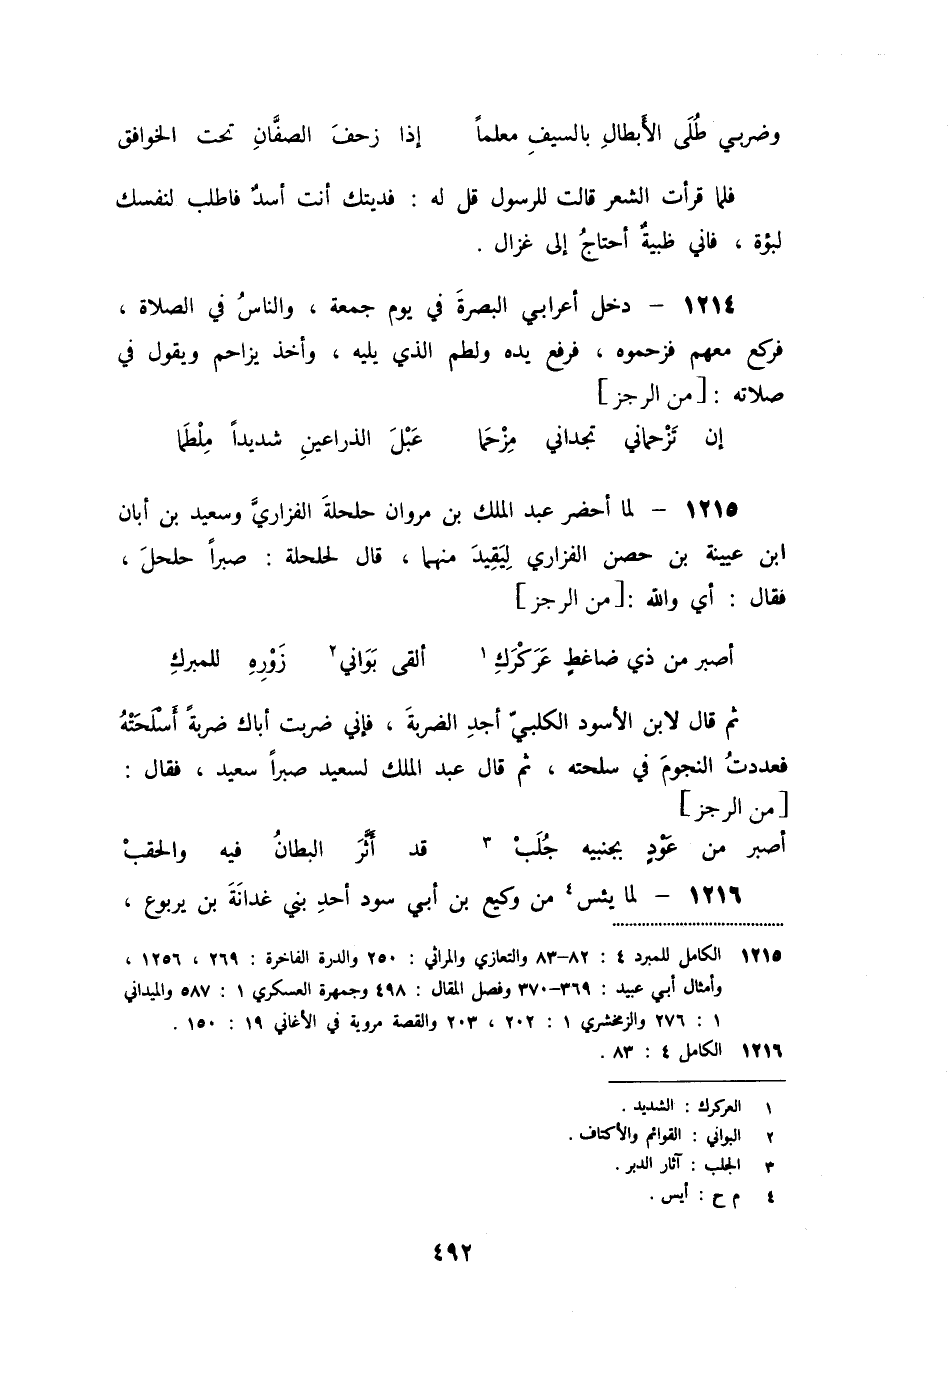 وضربي طُلَى الأَبطالِ بالسيفِ معلماً إذا زحفَ الصفَّانِ تحت الخوافق
فلما قرأت الشعر قالت للرسول قل له : فديتك أنت أسدٌ فاطلب لنفسك
لبؤة ، فاني ظبيةٌ أحتاجُ إلى غزال .
١٢١٤ – دخل أعرابي البصرةَ في يوم جمعة ، والناسُ في الصلاة ،
فركع معهم فزحموه ، فرفع يده ولطم الذي يليه ، وأخذ يزاحم ويقول في
صلاته : [ من الرجز ]
إن تَزْحماني تجداني مِزْحَما عَبْلَ الذراعينِ شديداً مِلْطَما
١٢١٥ – لما أحضر عبد الملك بن مروان حلحلةَ الفزاريَّ وسعيد بن أبان
ابن عيينة بن حصن الفزاري لِيَقِيدَ منهما ، قال لحلحلة : صبراً حلحلَ ،
فقال : أي والله : [ من الرجز ]
أصبر من ذي ضاغطٍ عَرَكْرَكِ١ ألقى بَوَاني٢ زَوْرِهِ للمبركِ
ثم قال لابن الأسود الكلبيّ أجدِ الضربةَ ، فإني ضربت أباك ضربةً أَسْلَحَتْهُ
فعددتُ النجومَ في سلحته ، ثم قال عبد الملك لسعيد صبراً سعيد ، فقال :
[ من الرجز ]
أصبر من عَوْدٍ بجنبيه جُلَبْ ٣ قد أَثَّرَ البطانُ فيه والحقبْ
١٢١٦ – لما يئس٤ من وكيع بن أبي سود أحدِ بني غدانَةَ بن يربوع ،
١٢١٥ الكامل للمبرد ٤ : ٨٢–٨٣ والتعازي والمراثي : ٢٥٠ والدرة الفاخرة : ٢٦٩ ، ١٢٥٦ ،
وأمثال أبي عبيد : ٣٦٩–٣٧٠ وفصل المقال : ٤٩٨ وجمهرة العسكري ١ : ٥٨٧ والميداني
١ : ٢٧٦ والزمخشري ١ : ٢٠٢ ، ٢٠٣ والقصة مروية في الأغاني ١٩ : ١٥٠ .
١٢١٦ الكامل ٤ : ٨٣ .
١ العركرك : الشديد .
٢ البواني : القوائم والأكتاف .
٣ الجلب : آثار الدبر .
٤ م ح : أيس .
٤٩٢